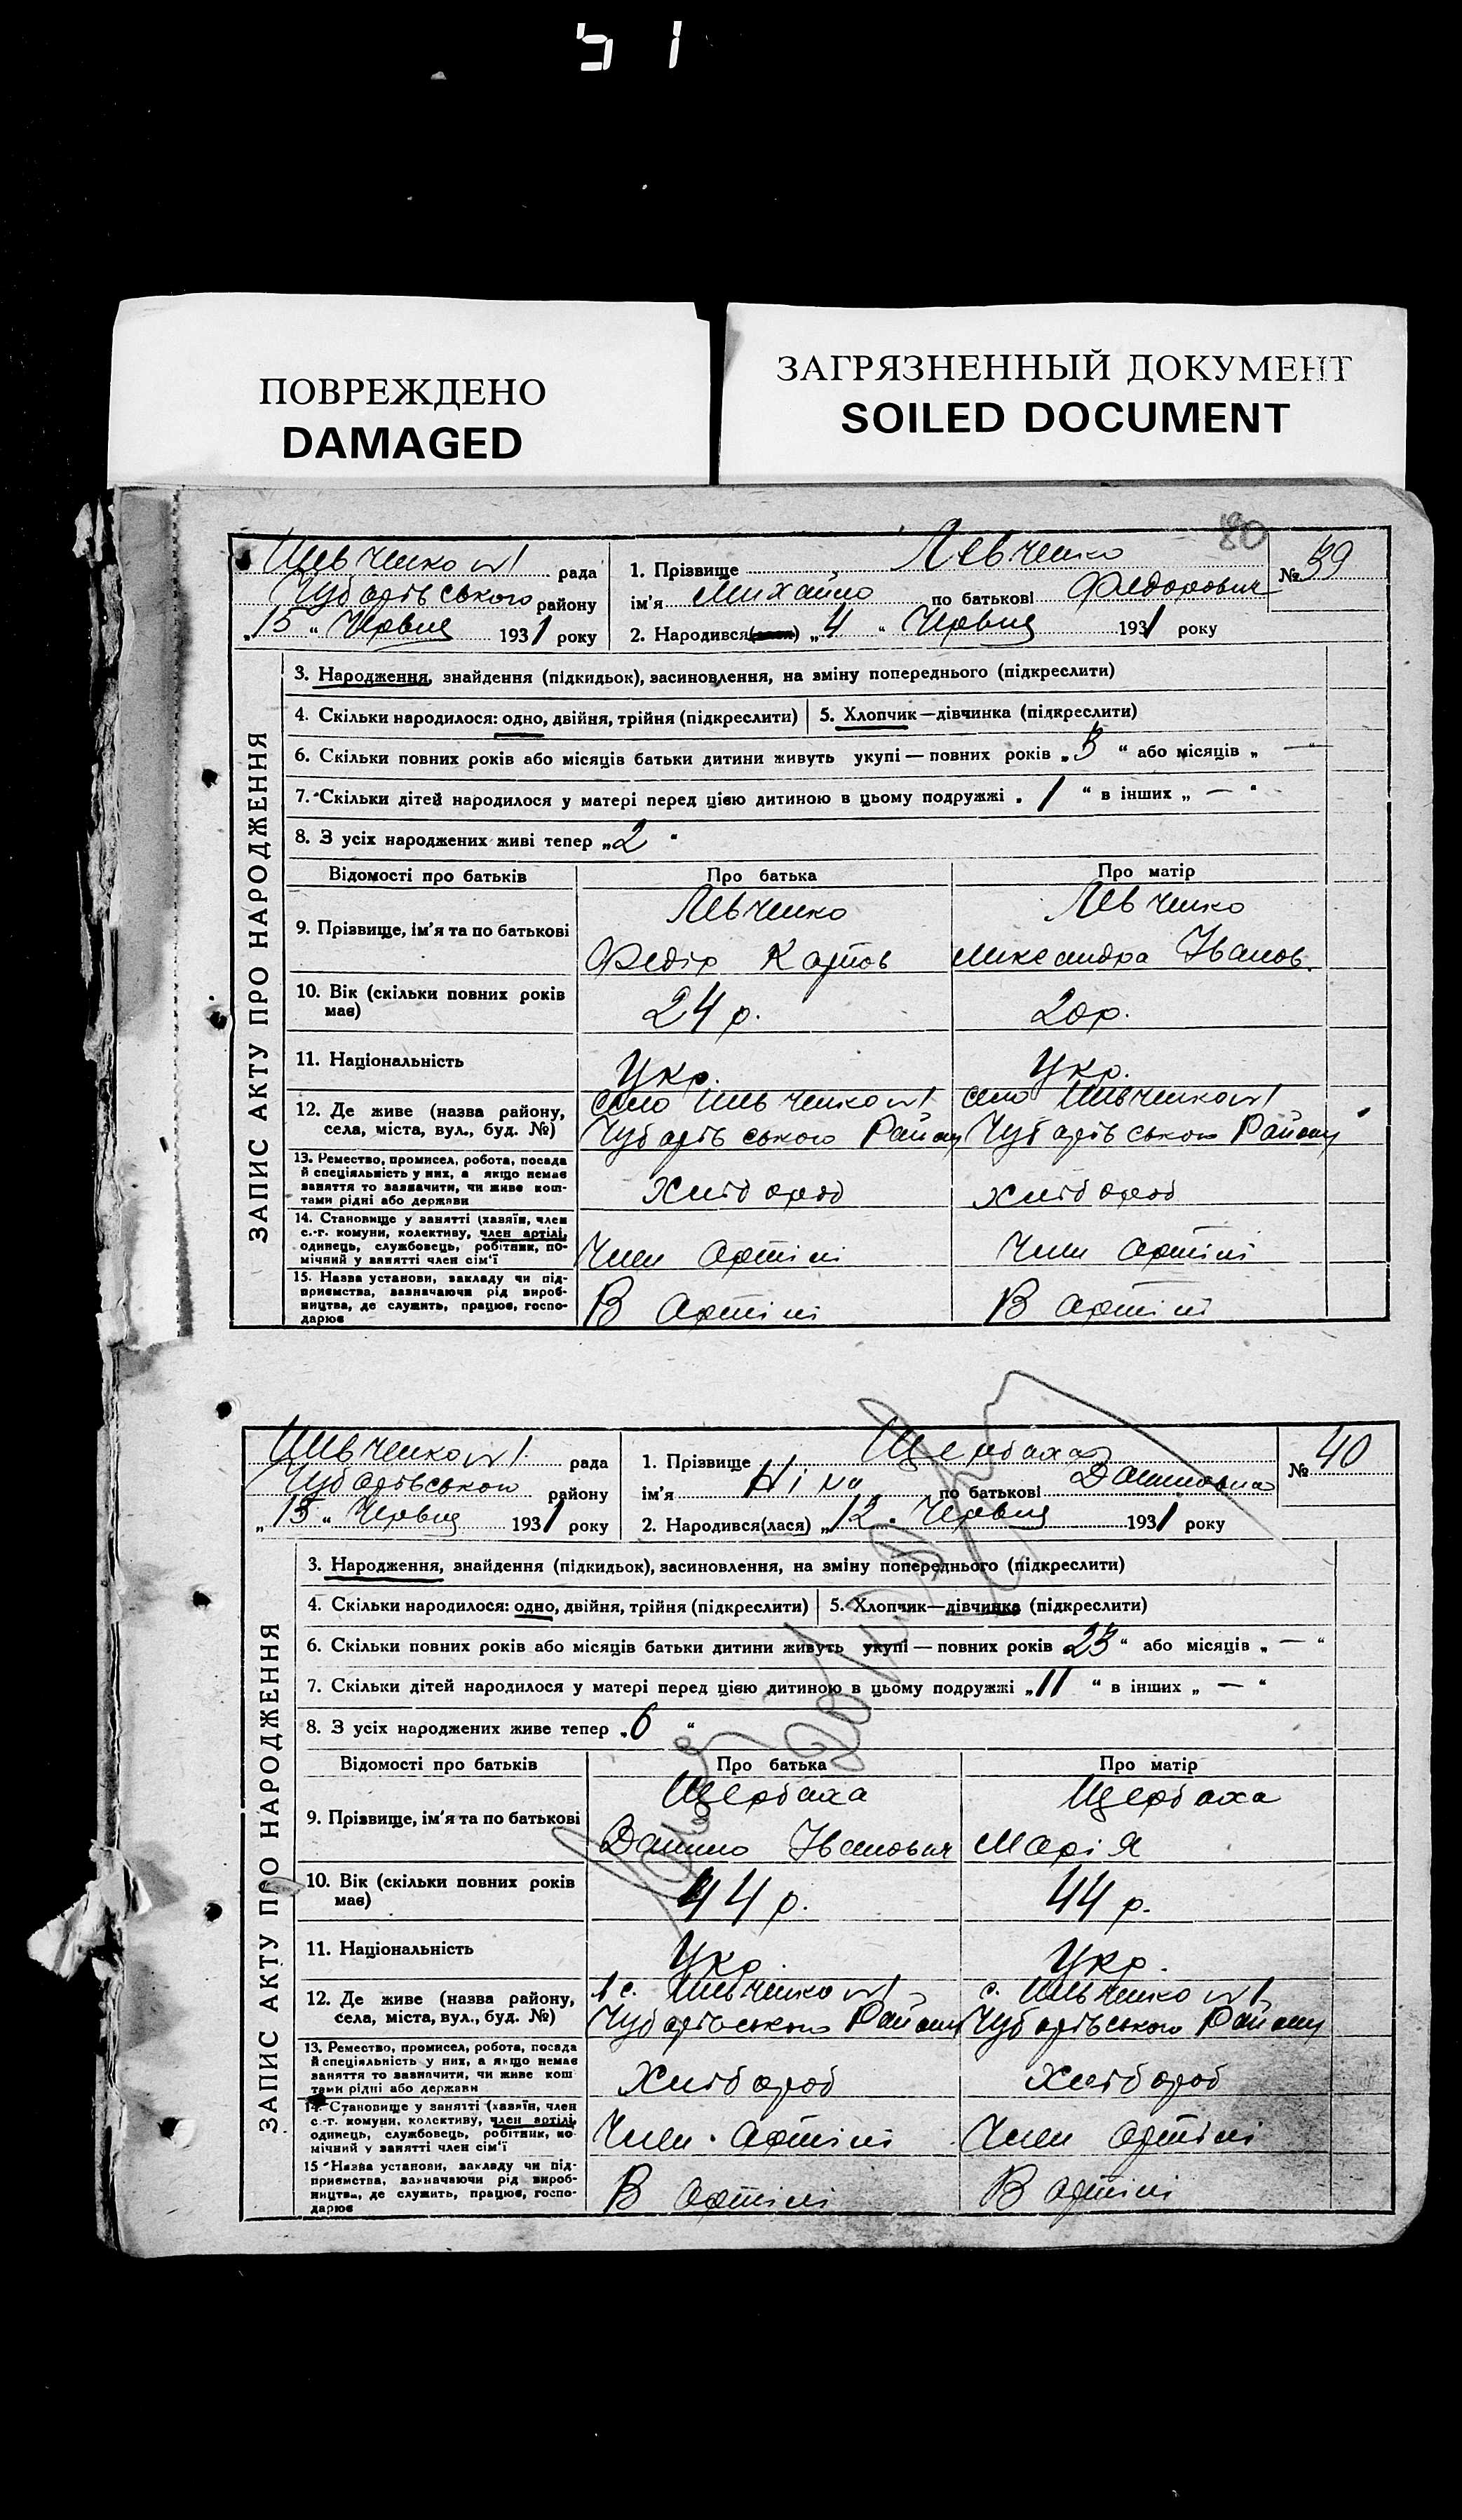 51
ПОВРЕЖДЕНО
DAMAGED
ЗАГРЯЗНЕННЫЙ ДОКУМЕНТ
SOILED DOCUMENT
80
ЗАПИС АКТУ ПРО НАРОДЖЕННЯ
Шевченко №1 рада
Чубарівського району
„15“ Червня 1931 року
1. Прізвище Левченко
№ 39
ім'я Михайло по батькові Федорович
2. Народився „4“ Червня 1931 року
3. Народження, знайдення (підкидьок), засиновлення, на зміну попереднього (підкреслити)
4. Скільки народилося: одно, двійня, трійня (підкреслити) 5. Хлопчик—дівчинка (підкреслити)
6. Скільки повних років або місяців батьки дитини живуть укупі — повних років „3“ або місяців „—“
7. Скільки дітей народилося у матері перед цією дитиною в цьому подружжі „1“ в інших „—“
8. З усіх народжених живі тепер „2“
Відомості про батьків Про батька Про матір
9. Прізвище, ім'я та по батькові
Левченко Левченко
Федір Карпов Олександра Іванов.
10. Вік (скільки повних років має) 24 р. 20 р.
11. Національність Укр. Укр.
12. Де живе (назва району, села, міста, вул., буд. №)
село Шевченко №1 село Шевченко №1
Чубарівського Району Чубарівського Району
13. Ремество, промисел, робота, посада
й спеціяльність у них, а якщо немає
заняття то зазначити, чи живе кош-
тами рідні або держави
Хлібороб Хлібороб
14. Становище у занятті (хазяїн, член
с.-г. комуни, колективу, член артілі,
одинець, службовець, робітник, по-
мічний у занятті член сім'ї
Член Артілі Член Артілі
15. Назва установи, закладу чи під-
приємства, зазначаючи рід вироб-
ництва, де служить, працює, госпо-
дарює
В Артілі В Артілі
ЗАПИС АКТУ ПРО НАРОДЖЕННЯ
Шевченко №1 рада
Чубарівського району
„15“ Червня 1931 року
1. Прізвище Щербаха
№ 40
ім'я Ніна по батькові Даниловна
2. Народився(лася) „12“ Червня 1931 року
3. Народження, знайдення (підкидьок), засиновлення, на зміну попереднього (підкреслити)
4. Скільки народилося: одно, двійня, трійня (підкреслити) 5. Хлопчик—дівчинка (підкреслити)
6. Скільки повних років або місяців батьки дитини живуть укупі — повних років 23“ або місяців „—“
7. Скільки дітей народилося у матері перед цією дитиною в цьому подружжі „11“ в інших „—“
8. З усіх народжених живе тепер „6“
Відомості про батьків Про батька Про матір
9. Прізвище, ім'я та по батькові
Щербаха Щербаха
Данило Іванович Марія
10. Вік (скільки повних років має) 44 р. 44 р.
11. Національність Укр. Укр.
12. Де живе (назва району, села, міста, вул., буд. №)
с. Шевченко №1 с. Шевченко №1
Чубарівського Району Чубарівського Району
13. Ремество, промисел, робота, посада
й спеціяльність у них, а якщо немає
заняття то зазначити, чи живе кош
тами рідні або держави
Хлібороб Хлібороб
14. Становище у занятті (хазяїн, член
с.-г. комуни, колективу, член артілі,
одинець, службовець, робітник, по
мічний у занятті член сім'ї
Член Артілі Член Артілі
15 Назва установи, закладу чи під-
приємства, зазначаючи рід вироб-
ництва, де служить, працює, госпо-
дарює
В Артілі В Артілі